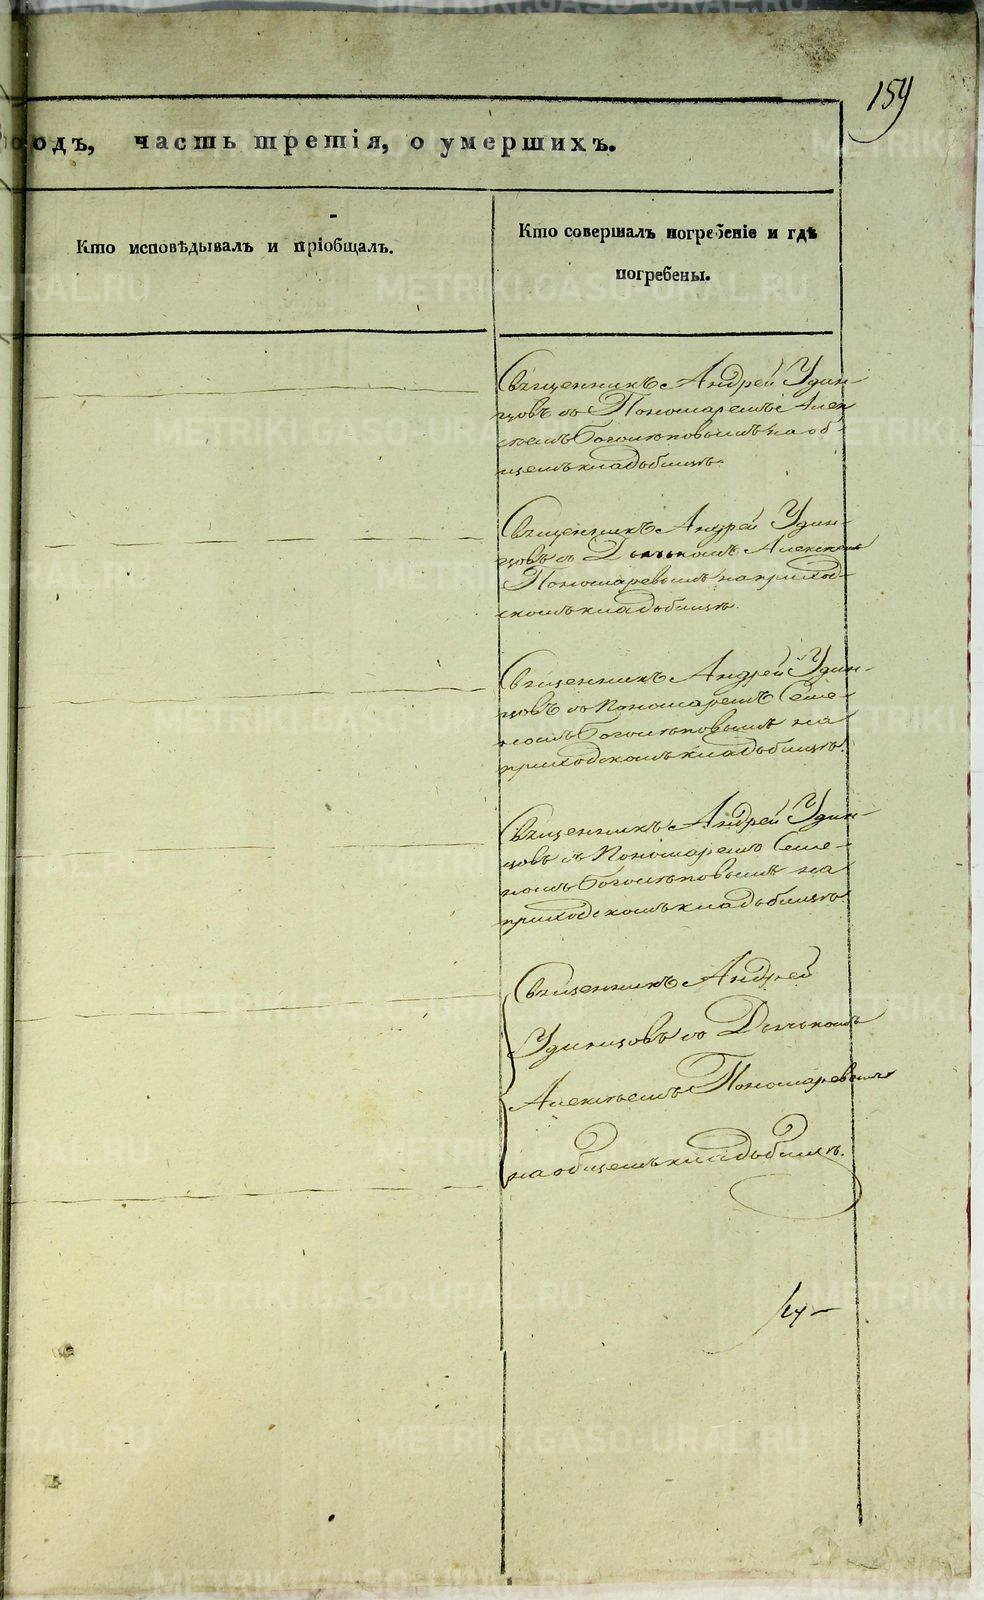 159
одъ, часть третія, о умершихъ.
Кто исповѣдывалъ и пріобщалъ.
Кто совершалъ погребеніе и гдѣ
погребены.
Священникъ Андрей Удин-
цовъ съ Пономаремъ Алек
сѣемъ Боголѣповымъ на об-
щемъ кладбищѣ.
Священникъ Андрей Удин-
цовъ съ Дьячкомъ Алексѣемъ
Пономаревымъ на приход-
скомъ кладбищѣ.
Священникъ Андрей Удин-
цовъ съ Пономаремъ Семе-
номъ Боголѣповымъ на
приходскомъ кладбищѣ.
Священникъ Андрей Удин-
цовъ съ Пономаремъ Семе-
номъ Боголѣповымъ на
приходскомъ кладбищѣ.
Священникъ Андрей
Удинцовъ съ Дьячкомъ
Алексѣемъ Пономаревымъ
на общемъ кладбищѣ.
METRIKI.GASO-URAL.RU